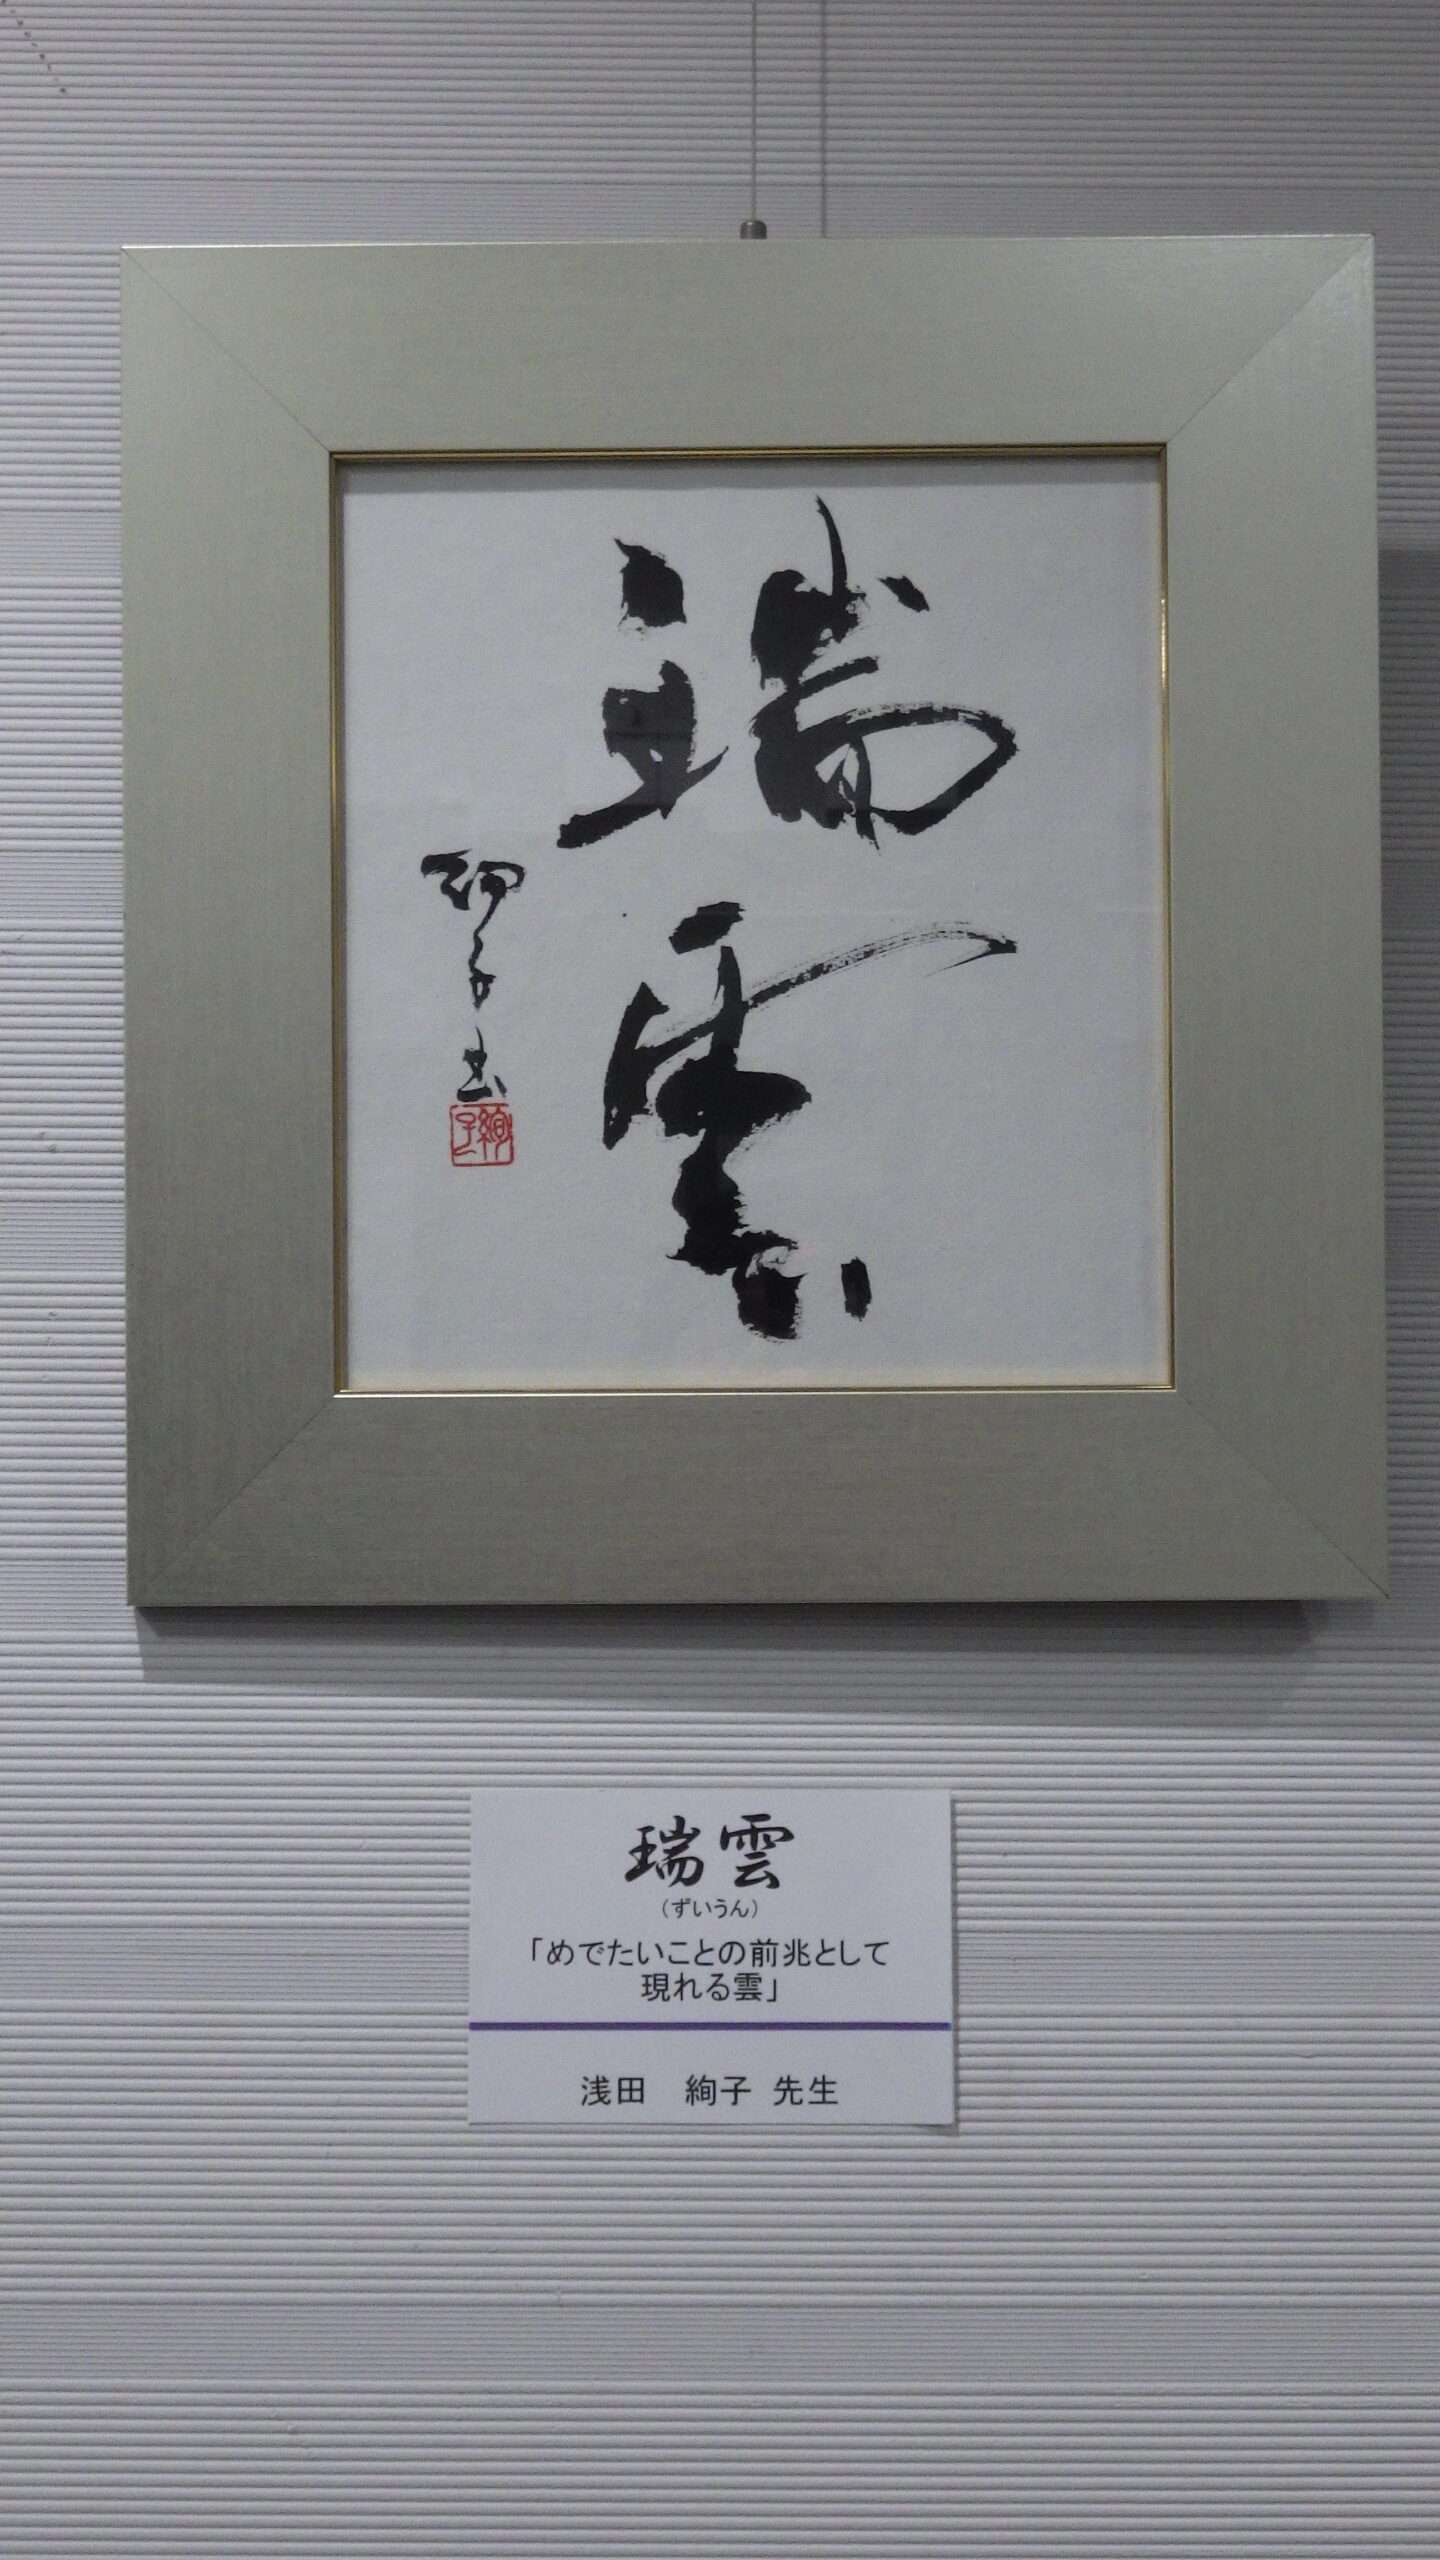 瑞雲
絢子書
絢子
瑞雲
（ずいうん）
「めでたいことの前兆として
現れる雲」
浅田　絢子 先生